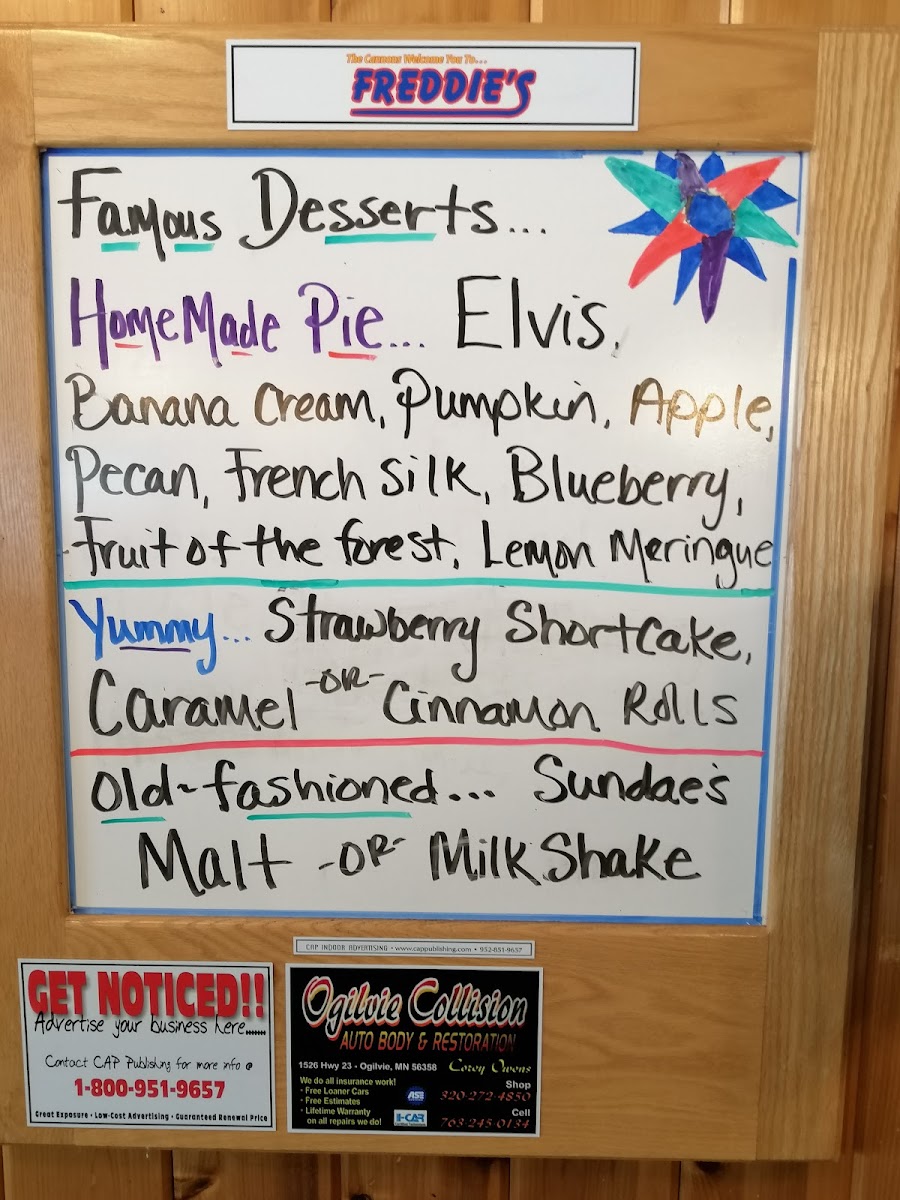 The Cannons Welcome You To...
FREDDIE'S
Famous Desserts...
HomeMade Pie... Elvis,
Banana Cream, Pumpkin, Apple,
Pecan, French Silk, Blueberry,
Fruit of the forest, Lemon Meringue
Yummy... Strawberry Shortcake,
Caramel -OR- Cinnamon Rolls
Old-fashioned... Sundae's
Malt -OR- MilkShake
CAP INDOOR ADVERTISING • www.cappublishing.com • 952-851-9657
GET NOTICED!!
Advertise your business here......
Contact CAP Publishing for more info @
1-800-951-9657
Great Exposure • Low-Cost Advertising • Guaranteed Renewal Price
Ogilvie Collision
AUTO BODY & RESTORATION
1526 Hwy 23 - Ogilvie, MN 56358 Corey Owens
We do all insurance work!
• Free Loaner Cars
• Free Estimates
• Lifetime Warranty
on all repairs we do!
ASE
I-CAR
Shop
320-272-4850
Cell
763-245-0134